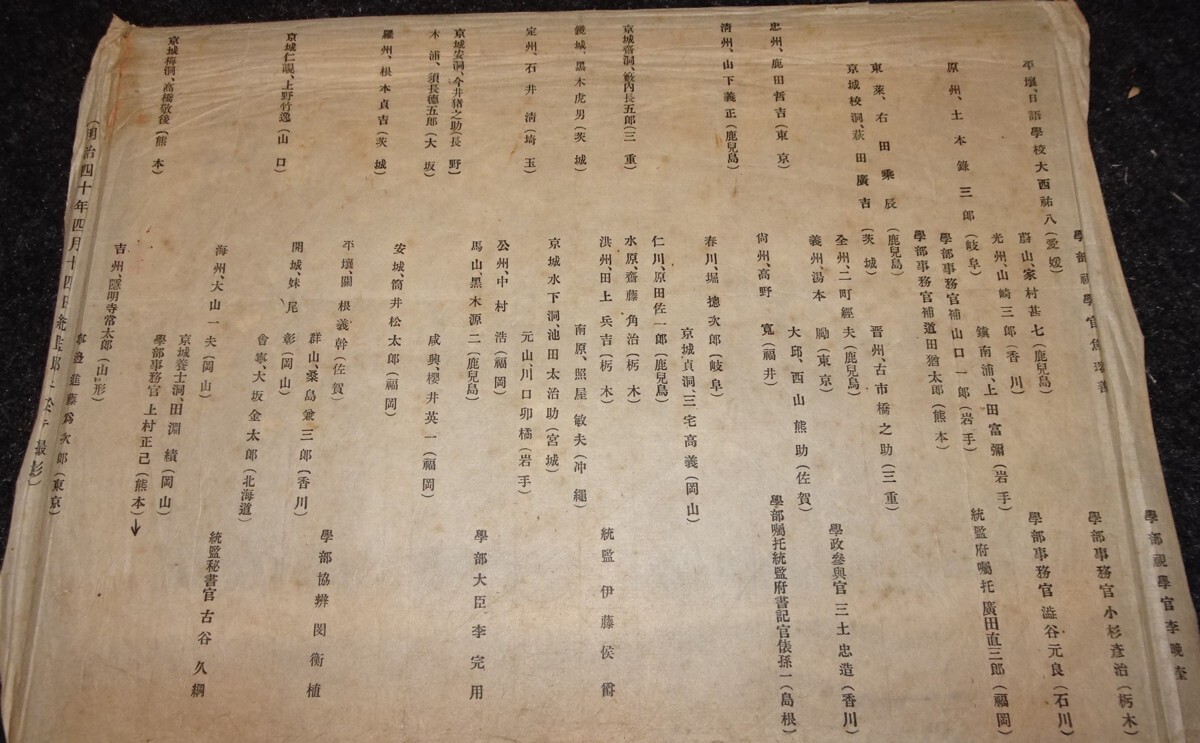 學部視學官 李晩奎
學部事務官 小杉彥治(栃木)
學部視學官
學部事務官 澁谷元良(石川)
平壤、日語學校大西祐八(愛媛)
蔚山、家村甚七(鹿兒島)
光州、山崎三郎(香川)
統監府囑托 廣田直三郎(福岡)
原州、土本錄三郎(岐阜)
鎭南浦、上田富彌(岩手)
學部事務官補 山口一郎(岩手)
學部事務官補 道田猶太郎(熊本)
東萊、右田乘辰(鹿兒島)
晉州、古市橋之助(三重)
京城校洞、萩田廣吉(茨城)
全州、二町經夫(鹿兒島)
學政參與官 三土忠造(香川)
義州、湯本勵(東京)
大邱、西山熊助(佐賀)
學部囑托統監府書記官俵孫一(島根)
忠州、鹿田哲吉(東京)
尙州、高野寬(福井)
淸州、山下義正(鹿兒島)
春川、堀摠次郎(岐阜)
京城貞洞、三宅高義(岡山)
仁川、原田佐一郎(鹿兒島)
京城齋洞、敏內長五郎(三重)
水原、齋藤角治(栃木)
洪州、田上兵吉(栃木)
統監 伊藤侯爵
鏡城、黑木虎男(茨城)
南原、照屋敏夫(冲繩)
京城水下洞、池田太治助(宮城)
定州、石井淸(埼玉)
元山、川口卯橘(岩手)
公州、中村浩(福岡)
京城安洞、今井猪之助(長野)
馬山、黑木源二(鹿兒島)
學部大臣 李完用
木浦、須長德五郎(大坂)
咸興、櫻井英一(福岡)
羅州、根本貞吉(茨城)
安城、筒井松太郎(福岡)
平壤、關根義幹(佐賀)
學部協辨 閔衡植
群山、桑島兼三郎(香川)
京城仁峴、上野竹逸(山口)
開城、妹尾彰(岡山)
會寧、大坂金太郎(北海道)
海州、大山一夫(岡山)
統監秘書官 古谷久綱
京城養士洞、田淵績(岡山)
京城梅洞、高橋敬後(熊本)
學部事務官 上村正己(熊本)→
吉州、隱明寺常太郎(山形)
進藤爲次郎(東京)
(明治四十年四月十四日統監邸ニ於テ撮影)